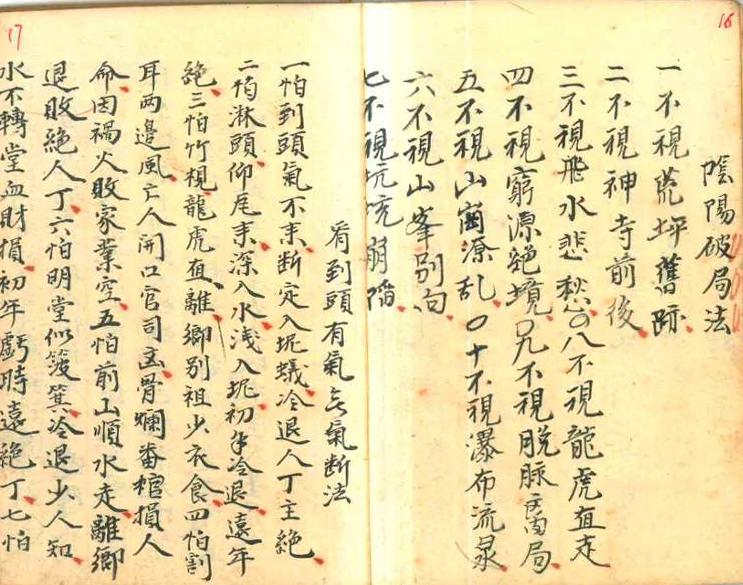 16
陰陽破局法
一不視荒坪舊跡
二不視神寺前後
三不視飛水悲愁〇八不視龍虎直走
四不視窮源絕境〇九不視脫脉离局
五不視山崗潦乱〇十不視瀑布流泉
六不視山峯別向
七不視坑坎崩陷
17
看到頭有氣无氣断法
一怕到頭氣不来断定入坭蟻冷退人丁主絕
二怕淋頭仰尾来深入水淺入坭初年冷退遠年
絕三怕竹梘龍虎直離鄉別祖少衣食四怕割
耳兩邉風亡人開口官司出骨爛番棺損人
命因禍火敗家業空五怕前山順水走離鄉
退敗絕人丁六怕明堂似簸箕冷退少人知
水不轉堂血財損初年虧時遠絕丁七怕